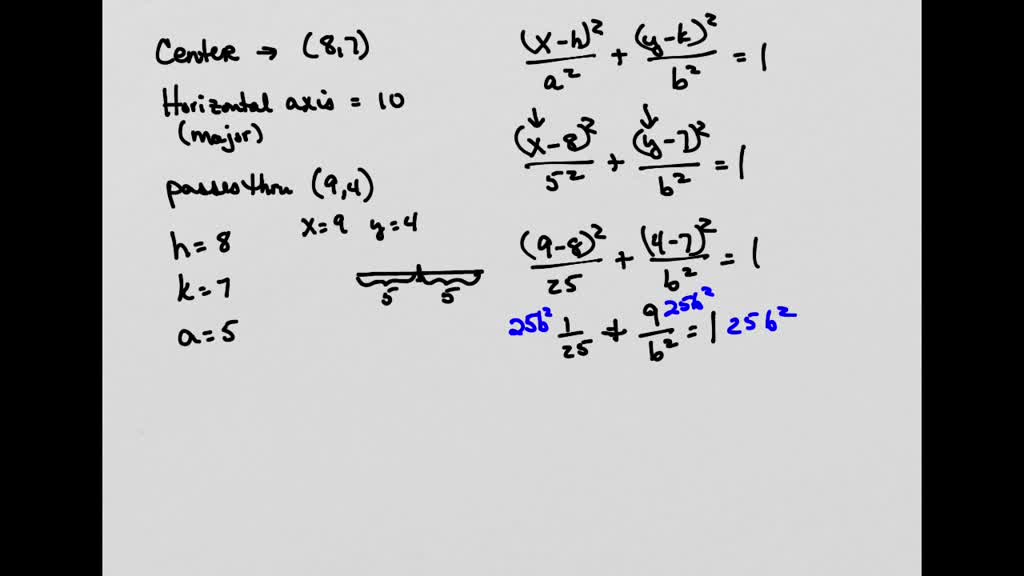 Center → (8,7)
Horizontal axis = 10
(major)
passes thru (9,4)
x=9 y=4
h=8
k=7
a=5
5 5
(x-h)²/a² + (y-k)²/b² = 1
↓ ↓
(x-8)²/5² + (y-7)²/b² = 1
(9-8)²/25 + (4-7)²/b² = 1
25b² 1/25 + 9/b² 25b² = 1 25b²